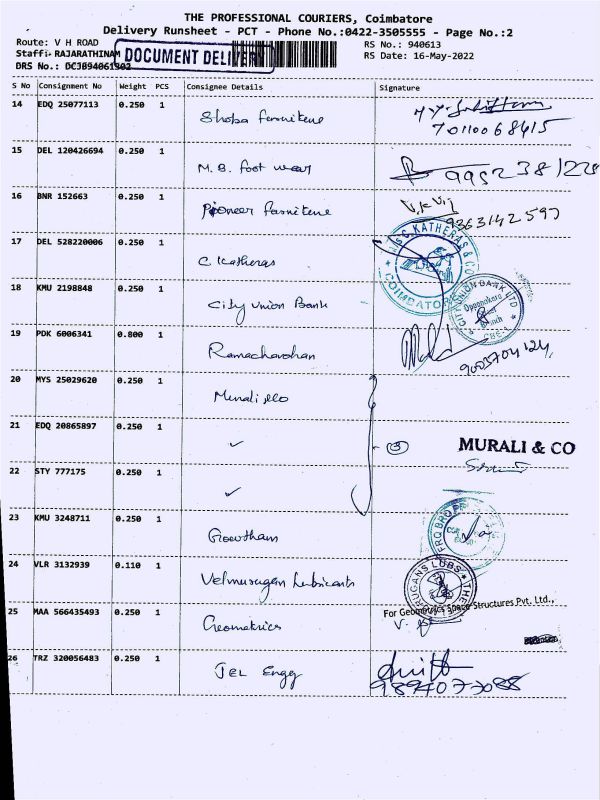 THE PROFESSIONAL COURIERS, Coimbatore
Delivery Runsheet - PCT - Phone No.:0422-3505555 - Page No.:2
Route: V H ROAD RS No.: 940613
Staff: RAJARATHINAM DOCUMENT DELIVERY RS Date: 16-May-2022
DRS No.: DCJ894061302
S No Consignment No Weight PCS Consignee Details Signature
14 EDQ 25077113 0.250 1 Shoba farnitene
7010068415
15 DEL 120426694 0.250 1 M.B. foot wear 9952381228
16 BNR 152663 0.250 1 Pioneer farnitene 9363142597
17 DEL 528220006 0.250 1 C. Katheras C. KATHERAS & CO COIMBATORE
18 KMU 2198848 0.250 1 City Union Bank CITY UNION BANK LTD Oppanakara Street Branch CBE-1
19 PDK 6006341 0.800 1 Ramachandran 9003704124
20 MYS 25029620 0.250 1 Murali
21 EDQ 20865897 0.250 1 ✓ - 3 MURALI & CO
22 STY 777175 0.250 1 ✓
23 KMU 3248711 0.250 1 Gowtham
24 VLR 3132939 0.110 1 Velmurugan Lubricants
For Geometrics Space Structures Pvt. Ltd.,
25 MAA 566435493 0.250 1 Geometrics
26 TRZ 320056483 0.250 1 JEL Engg
9894077088